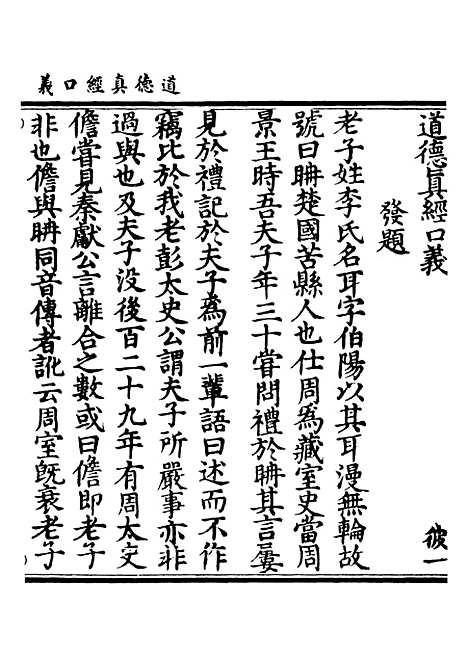 道德真經口義
道德真經口義
彼一
發題
老子姓李氏名耳字伯陽以其耳漫無輪故
號曰聃楚國苦縣人也仕周為藏室史當周
景王時吾夫子年三十嘗問禮於聃其言屢
見於禮記於夫子為前一輩語曰述而不作
竊比於我老彭太史公謂夫子所嚴事亦非
過與也及夫子沒後百二十九年有周太史
儋嘗見秦獻公言離合之數或曰儋即老子
非也儋與聃同音傳者訛云周室既衰老子